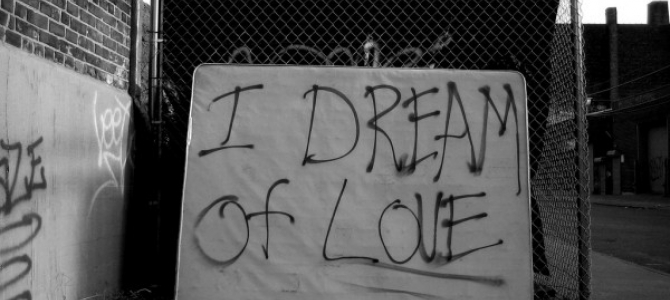 I DREAM
Of LOVE